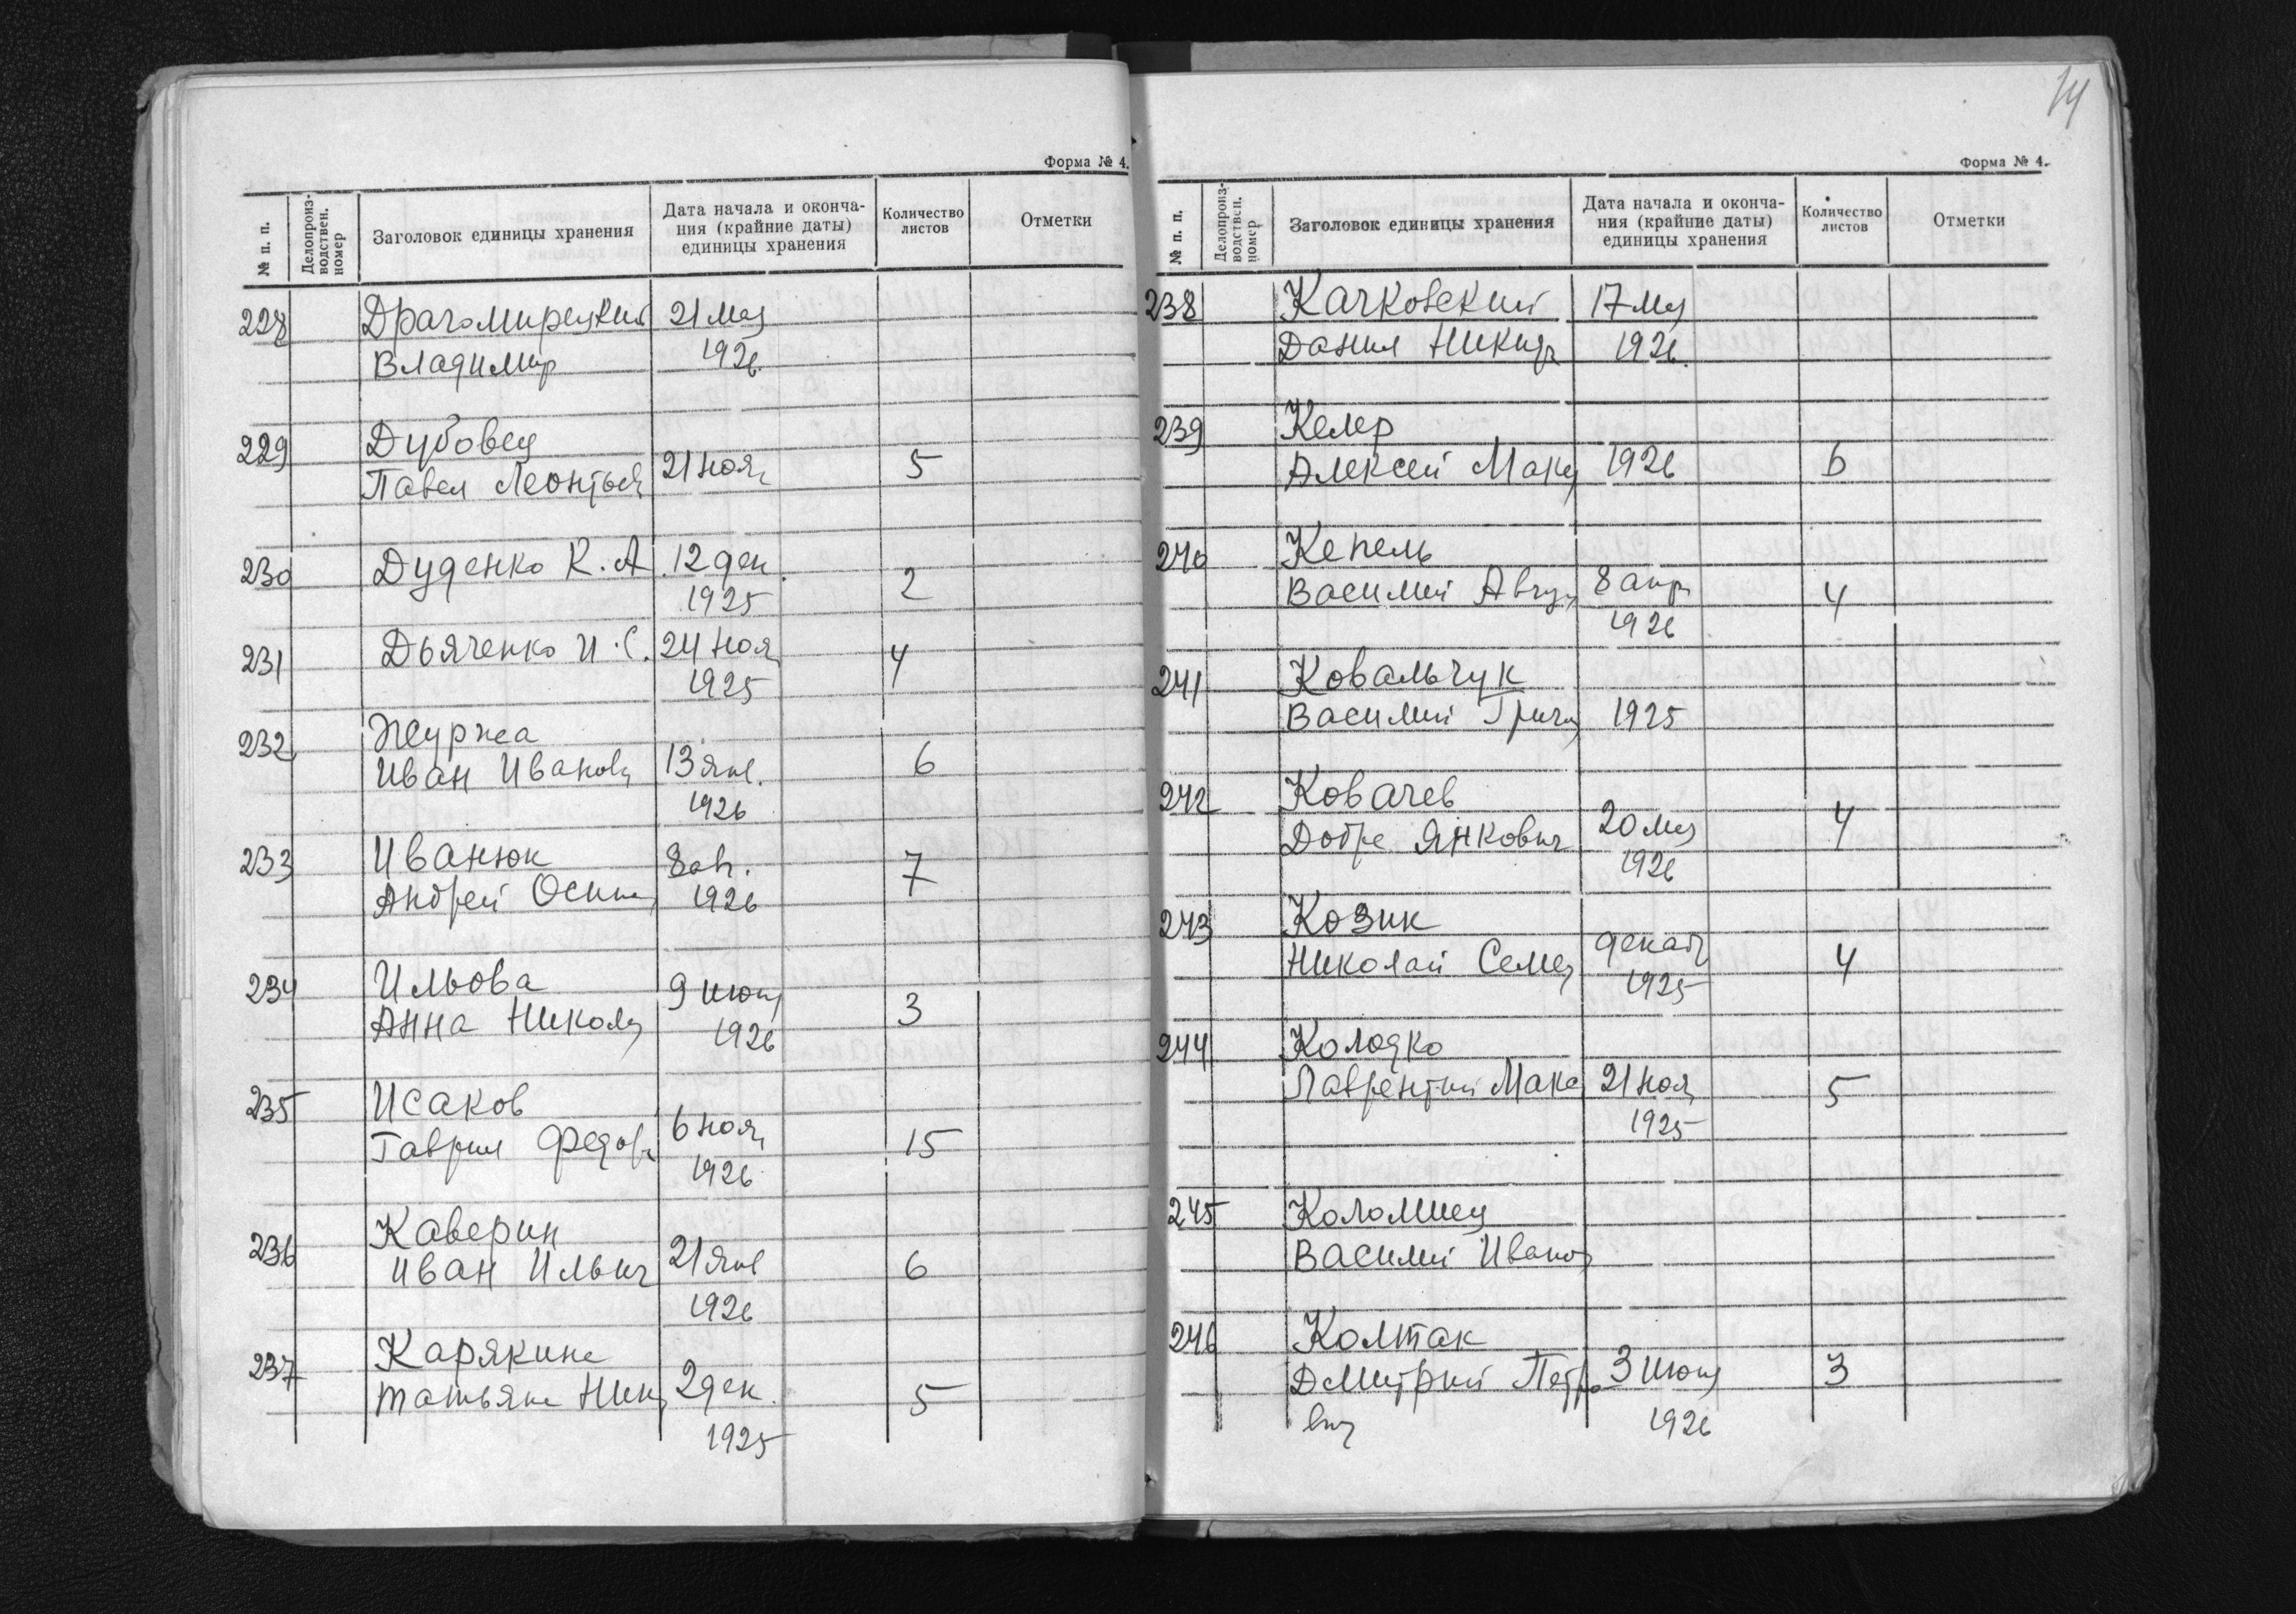 Форма № 4.
№ п. п.
Делопроиз-
водствен.
номер
Заголовок единицы хранения
Дата начала и оконча-
ния (крайние даты)
единицы хранения
Количество
листов
Отметки
228 Драгомирецкий 21 мая
Владимир 1926.
229 Дубовец
Павел Леонтьев 21 ноя 5
230 Дуденко К. А. 12 дек.
1925 2
231 Дьяченко И. С. 24 ноя 4
1925
232 Журжа
Иван Иванов 13 янв. 6
1926
233 Иванюк 8 ав. 7
Андрей Осип 1926
234 Ильова 9 июн
Анна Никол 1926 3
235 Исаков
Гаврил Федов 6 ноя 15
1926
236 Каверин
Иван Ильич 21 янв 6
1926
237 Карякина
Татьяна Ник 2 дек. 5
1925
14
Форма № 4.
№ п. п.
Делопроиз-
водствен.
номер
Заголовок единицы хранения
Дата начала и оконча-
ния (крайние даты)
единицы хранения
Количество
листов
Отметки
238 Качковский 17 мая
Данил Никид 1926.
239 Келер
Алексей Мак 1926 6
240 Кепель
Василий Авгу 8 апр 4
1926
241 Ковальчук
Василий Григ 1925
242 Ковачев
Добре Янкович 20 мая 4
1926
243 Козик
Николай Семе декаб 4
1925
244 Колодко
Лаврентий Макс 21 ноя 5
1925
245 Коломиец
Василий Иванов
246 Колтак
Дмитрий Петро 3 июн 3
вич 1926